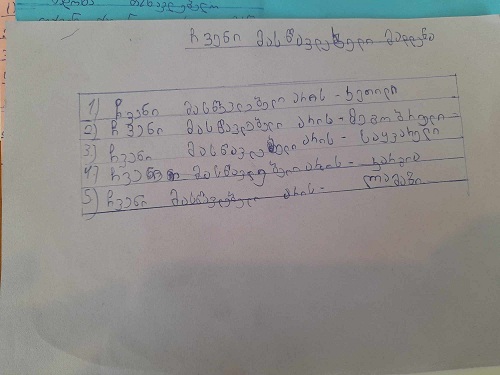 ჩვენი მასწავლებელი მადლენა
1) ჩვენი მასწავლებელი არის - კეთილი
2) ჩვენი მასწავლებელი არის - მეგობრული
3) ჩვენი მასწავლებელი არის - საყვარელი
4) ჩვენი მასწავლებელი არის - კარგი
5) ჩვენი მასწავლებელი არის - ლამაზი